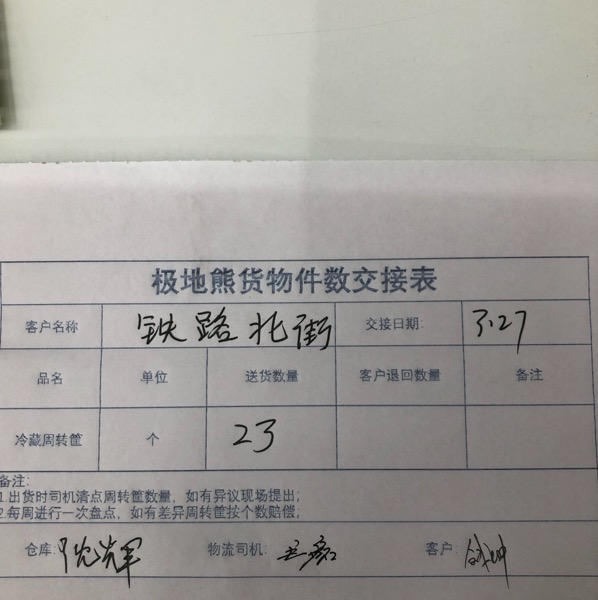 极地熊货物件数交接表
客户名称 铁路北街 交接日期: 3.27
品名 单位 送货数量 客户退回数量 备注
冷藏周转筐 个 23
备注:
1.出货时司机清点周转筐数量，如有异议现场提出;
2.每周进行一次盘点，如有差异周转筐按个数赔偿;
仓库: 物流司机: 客户: